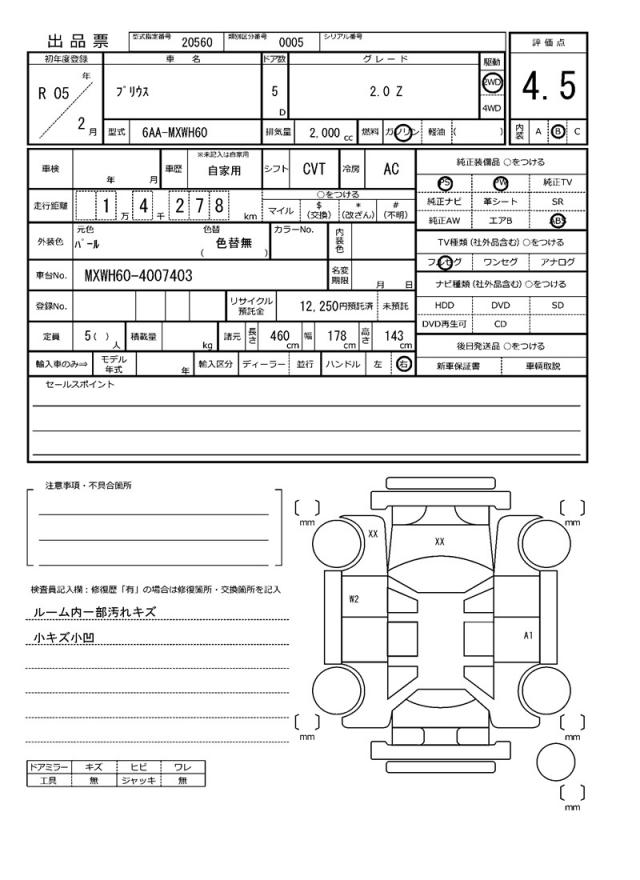 出品票
型式指定番号 20560 類別区分番号 0005 シリアル番号
評価点
初年度登録 車名 ドア数 グレード 駆動
R 05 年 2 月
プリウス
5 D
2.0 Z
2WD
4WD
4.5
型式 6AA-MXWH60 排気量 2,000 cc 燃料 ガソリン 軽油 ( )
内装 A B C
車検 年 月 車歴 ※未記入は自家用 自家用 シフト CVT 冷房 AC
純正装備品 ○をつける
PS PW 純正TV
走行距離 1 万 4 千 2 7 8 km
○をつける
マイル $ (交換) * (改ざん) # (不明)
純正ナビ 革シート SR
純正AW エアB ABS
外装色 元色 パール 色替 色替無 ( ) カラーNo. 内装色
TV種類 (社外品含む) ○をつける
フルセグ ワンセグ アナログ
車台No. MXWH60-4007403 名変期限 月 日
ナビ種類 (社外品含む) ○をつける
登録No. リサイクル預託金 12,250円預託済 未預託
HDD DVD SD
DVD再生可 CD
定員 5( ) 人 積載量 kg 諸元 長さ 460 cm 幅 178 cm 高さ 143 cm
後日発送品 ○をつける
輸入車のみ⇒ モデル年式 年 輸入区分 ディーラー 並行 ハンドル 左 右
新車保証書 車輌取説
セールスポイント
注意事項・不具合箇所
mm
mm
XX
XX
検査員記入欄：修復歴「有」の場合は修復箇所・交換箇所を記入
W2
ルーム内一部汚れキズ
小キズ小凹
A1
mm
mm
ドアミラー キズ ヒビ ワレ
工具 無 ジャッキ 無
mm